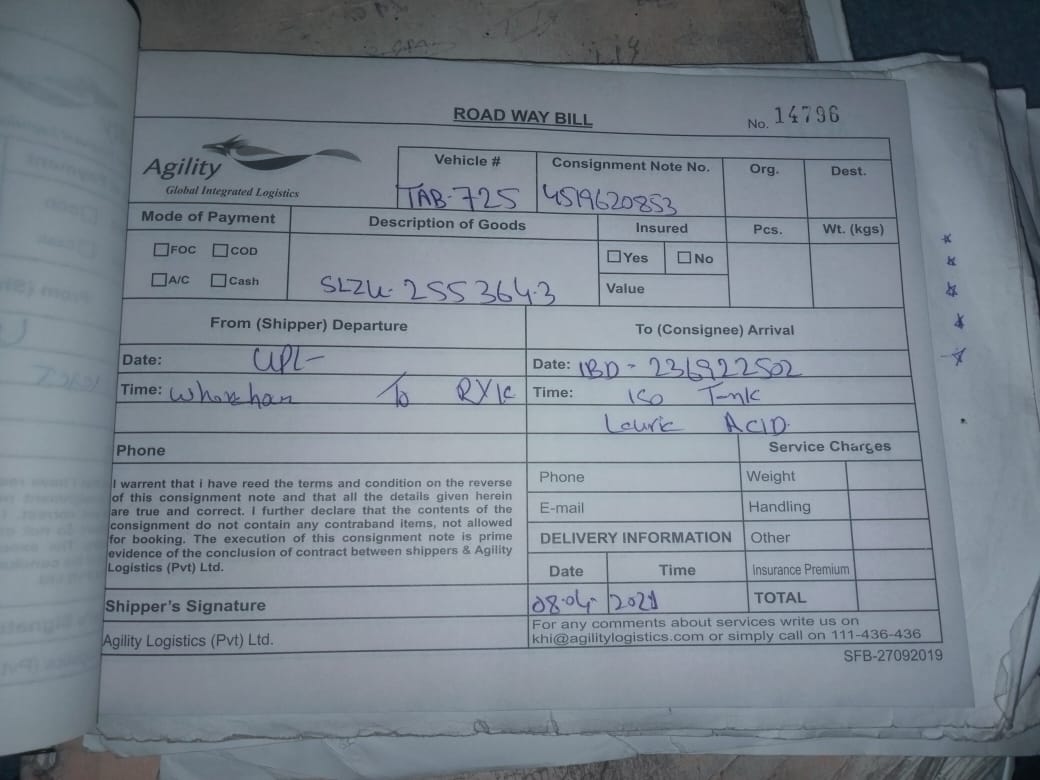 ROAD WAY BILL
No. 14796
Agility
Global Integrated Logistics
Vehicle # Consignment Note No. Org. Dest.
TAB-725 4519620853
Mode of Payment Description of Goods Insured Pcs. Wt. (kgs)
FOC COD Yes No
A/C Cash SLZU-255364-3 Value
From (Shipper) Departure To (Consignee) Arrival
Date: UPL- Date: IBD-236922502
Time: To RYK Time: ISO Tank
Lauric ACID.
Phone Service Charges
I warrent that i have reed the terms and condition on the reverse
of this consignment note and that all the details given herein
are true and correct. I further declare that the contents of the
consignment do not contain any contraband items, not allowed
for booking. The execution of this consignment note is prime
evidence of the conclusion of contract between shippers & Agility
Logistics (Pvt) Ltd.
Phone Weight
E-mail Handling
DELIVERY INFORMATION Other
Date Time Insurance Premium
Shipper's Signature 08-04- 2021 TOTAL
Agility Logistics (Pvt) Ltd.
For any comments about services write us on
khi@agilitylogistics.com or simply call on 111-436-436
SFB-27092019